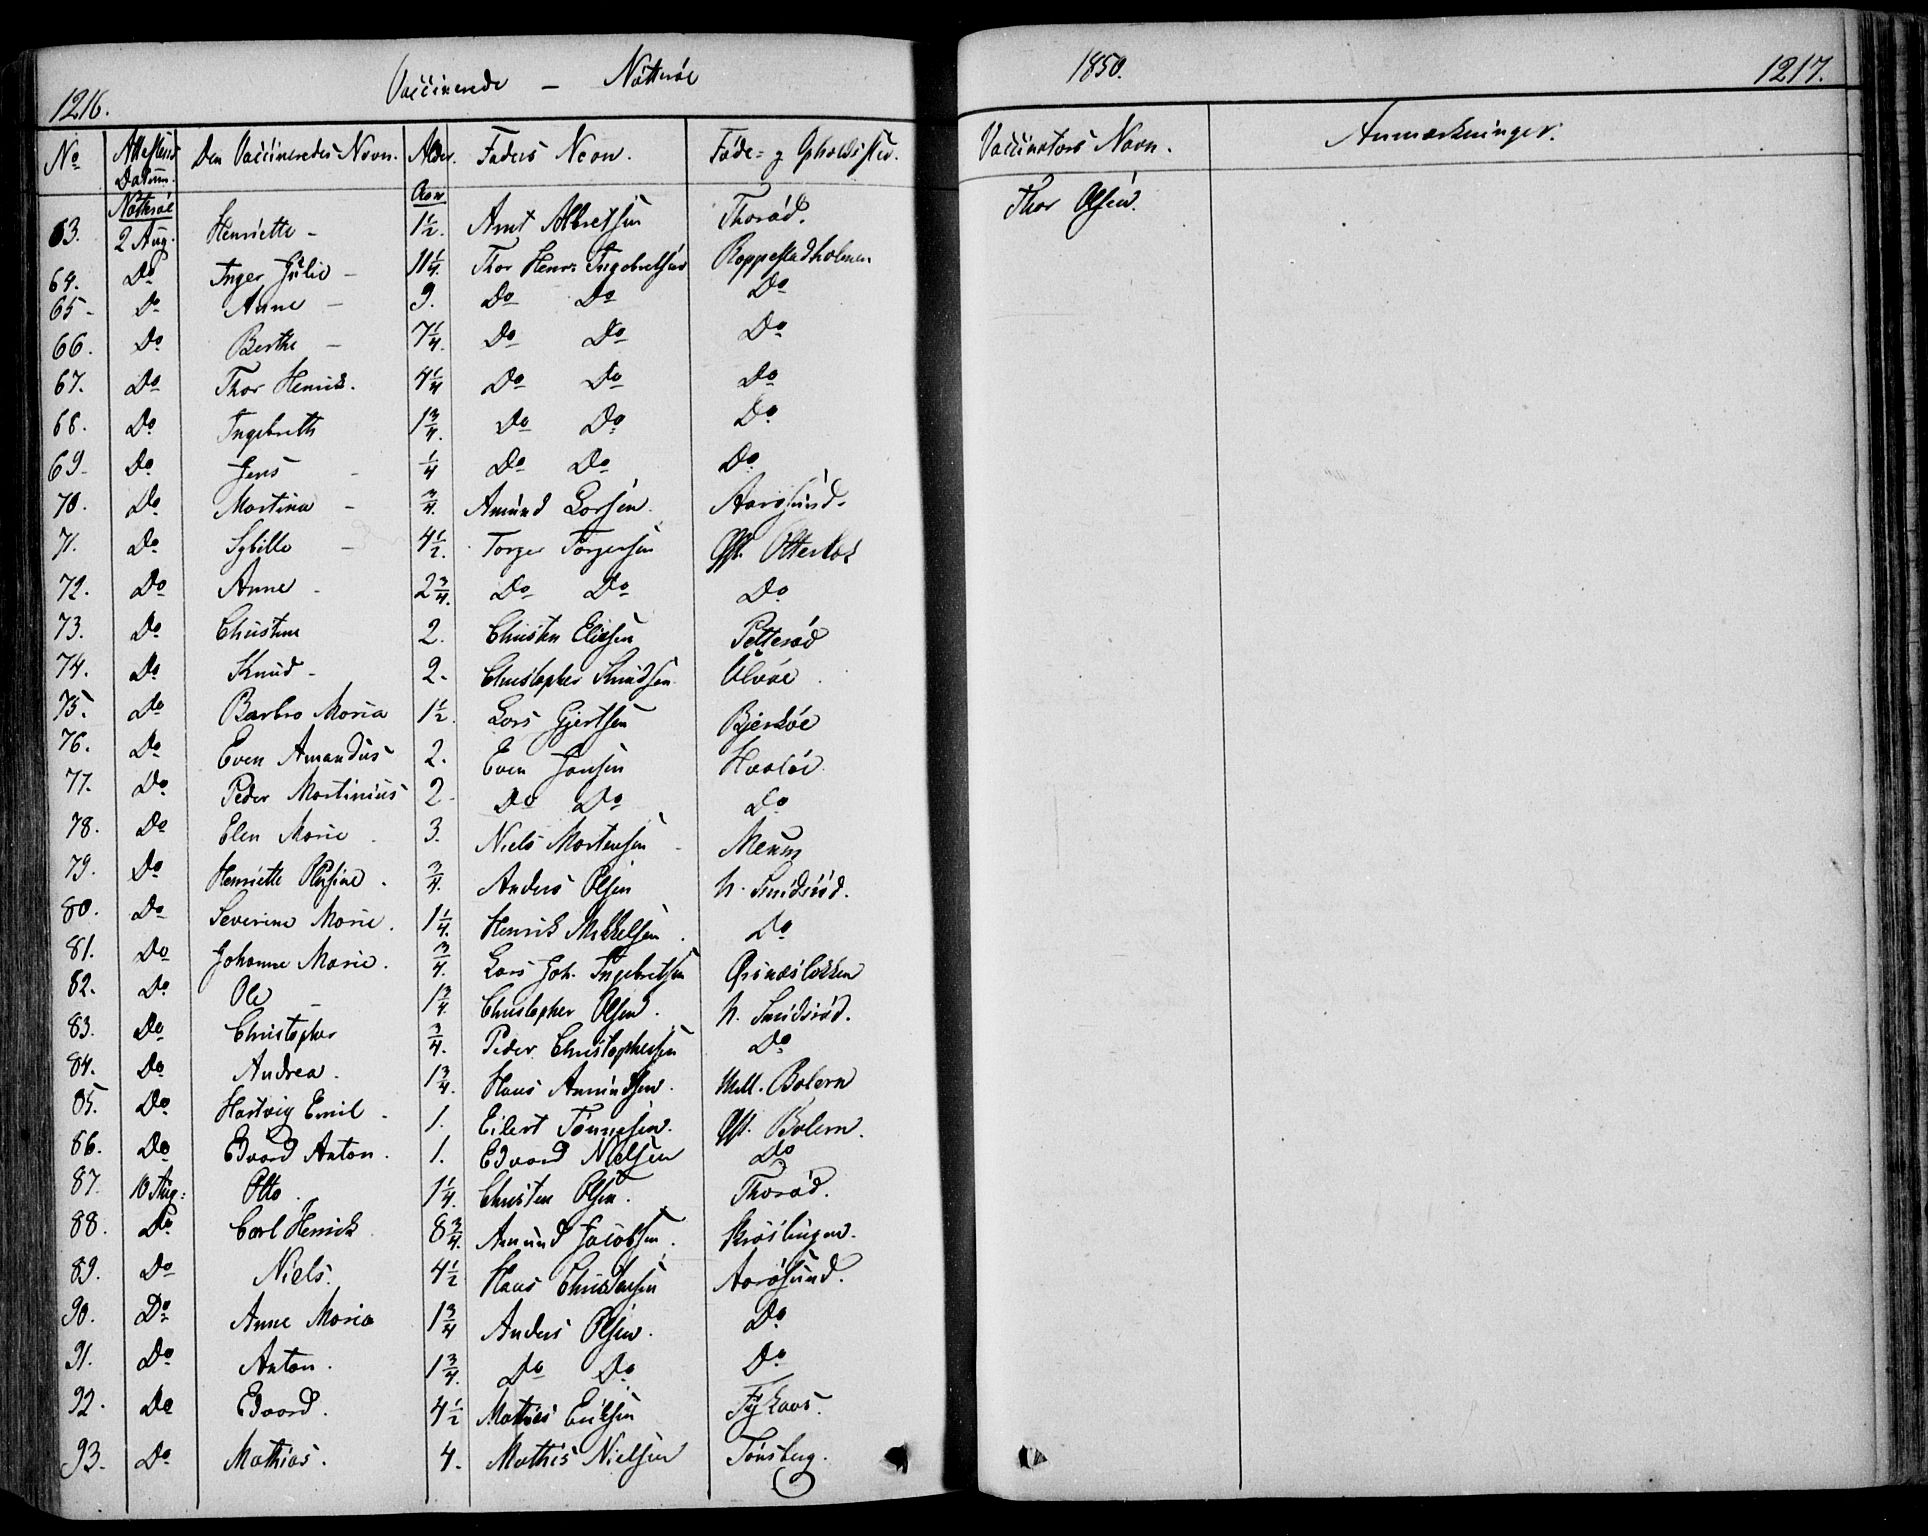 1216. Vaccinerede – Nøtterøe
No Attestens Datum. Den Vaccineredes Navn. Alder. Faders Navn. Føde- og Opholdssted.
Nøtterøe Aar.
63. 2 Aug. Henriette – 1½. Arnt Albretsen Thorød.
64. Do Inger Julie – 11¼. Thor Henr: Ingebretsen Roppestadholmen
65 – Do Anne – 9. Do Do Do
66. Do Berthe – 7¼. Do Do Do
67. Do Thor Henrik. 4¼ Do Do Do
68. Do Ingebreth 1¾. Do Do Do
69 – Do Jens – ¼ Do Do Do
70. Do Martina – ¾. Amund Larsen. Aarøsund.
71. Do Sybille – 4½. Torger Torgersen Øst. Otterbek
72. Do Anne – 2¾. Do Do Do
73. Do Christine 2. Christen Eliesen Petterød
74. Do Knud – 2. Christopher Knudsen Ulvøe
75. Do Barbro Maria 1½. Lars Gjertsen Bjerkøe
76. Do Even Amandus 2. Even Jansen Hvaløe
77. Do Peder Martinius 2 – Do Do Do
78. Do Elen Marie 3. Niels Mortensen – Meum
79. Do Henriette Olufine. ¾. Anders Olsen N. Smidsrød.
80. Do Severine Marie. 1¼. Henrik Mikkelsen. Do
81. Do Johanne Marie. ¾. Lars Joh. Ingebretsen Ørsnesløkken
82. Do Ole – 1¾. Christopher Olsen. N. Smidsrød.
83. Do Christopher ¾. Peder Christophersen Do
84. Do Andrea. 1¾. Hans Amundsen. Mell. Bolern
85. Do Hartvig Emil – 1. Eilert Tønnesen. Øst. Bolern.
86. Do Edvard Anton. 1. Edvard Nielsen Do
87. 10 Aug: Otto. 1¼. Christen Olsen. Thorød.
88. Do Carl Henrik 8¾. Amund Jacobsen. Krøslingen.
89. Do Niels. 4½ Hans Christensen Aarøsund.
90. Do Anne Maria 1¾ Anders Olsen. Do
91. Do Anton. 1¾. Do Do Do
92. Do Edvard. 4½ Mathis Eriksen
93. Do Mathias. 4. Mathis Nielsen Tønsberg.
1850. 1217.
Vaccinators Navn. Anmærkninger.
Thor Olsen.